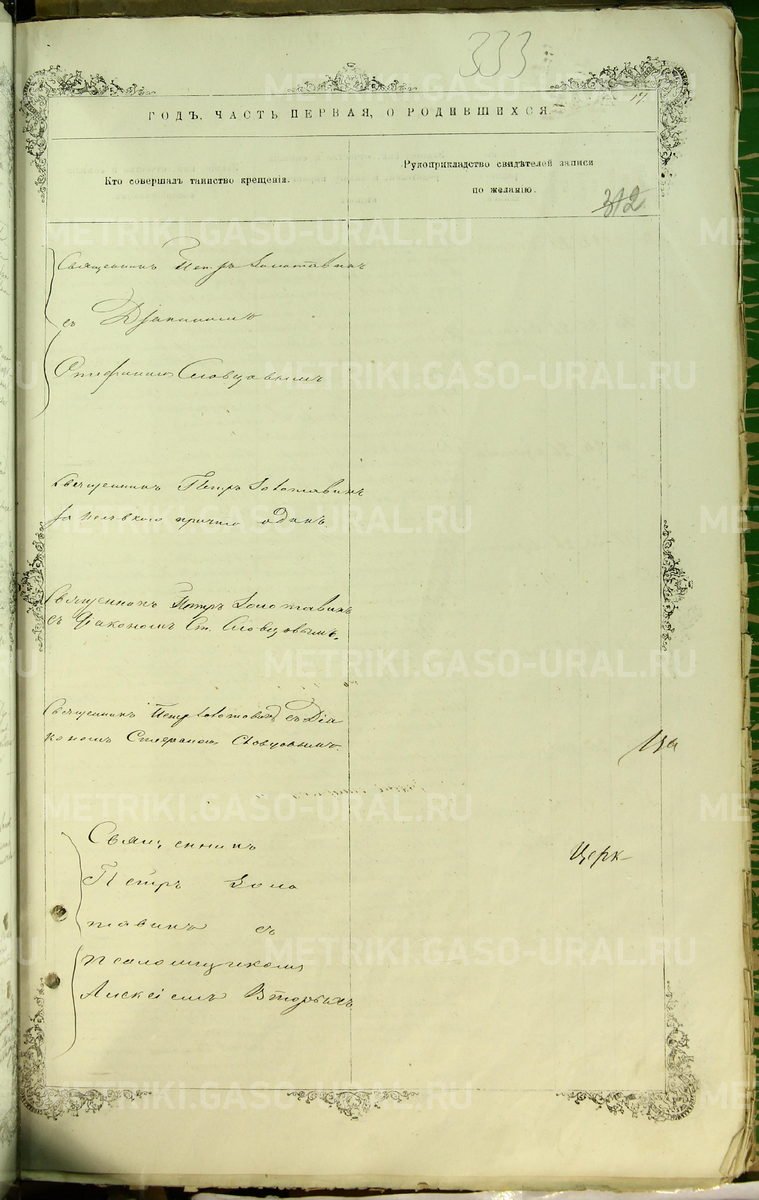 333
17
ГОДЪ, ЧАСТЬ ПЕРВАЯ, О РОДИВШИХСЯ
Кто совершалъ таинство крещенія.
Рукоприкладство свидѣтелей записи
по желанію.
312
Священникъ Петръ Золотавинъ
съ Діакономъ
Стефаномъ Словцовымъ
Священникъ Петръ Золотавинъ
причта одинъ.
Священникъ Петръ Золотавинъ
съ Діакономъ Ст. Словцовымъ.
Священникъ Петръ Золотавинъ съ Діа
кономъ Стефаномъ Словцовымъ.
Церк
Священникъ
Петръ Золо
тавинъ съ
Псаломщикомъ
Алексіемъ Вторыхъ
METRIKI.GASO-URAL.RU